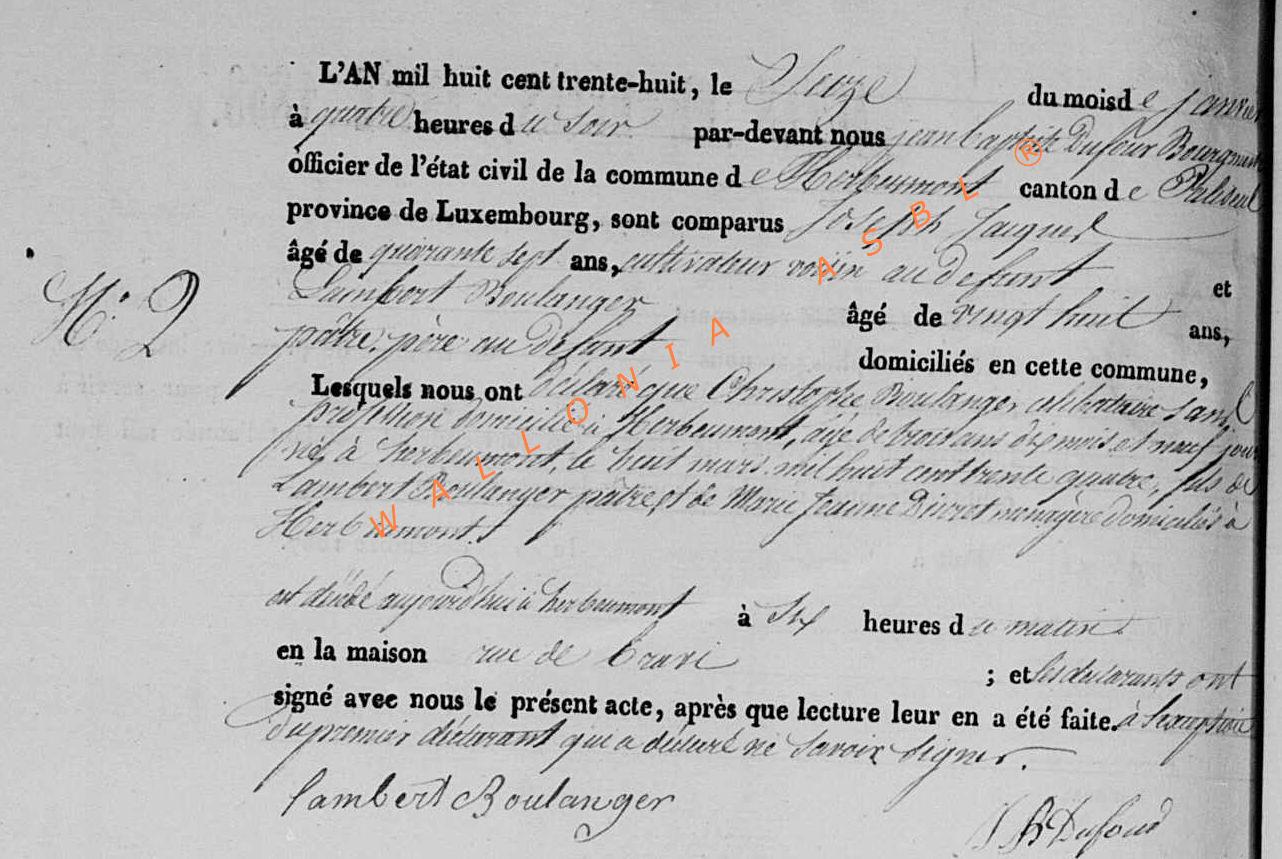 L'AN mil huit cent trente-huit, le Seize du mois de janvier
à quatre heures du soir par-devant nous jean baptiste Dufour Bourgmestre
officier de l'état civil de la commune de Herbeumont canton de Paliseul
province de Luxembourg, sont comparus Joseph
âgé de quarante sept ans, cultivateur voisin au defunt et
Lambert Boulanger âgé de vingt huit ans,
pâtre, père au defunt domiciliés en cette commune,
N.º 2
Lesquels nous ont déclaré que Christophe Boulanger, celibataire sans
profession domicilié à Herbeumont, agé de trois ans dix mois et neuf jours
né à herbeumont, le huit mars mil huit cent trente quatre, fils de
Lambert Boulanger pâtre et de Marie Jeanne menagère domiciliés à
Herbeumont.
est décédé aujourd'hui à herbeumont à Six heures du matin
en la maison rue de ; et les declarants ont
signé avec nous le présent acte, après que lecture leur en a été faite. à l'exception
du premier déclarant qui a déclaré ne savoir signer.
Lambert Boulanger
JB Dufour
WALLONIA ASBL ®